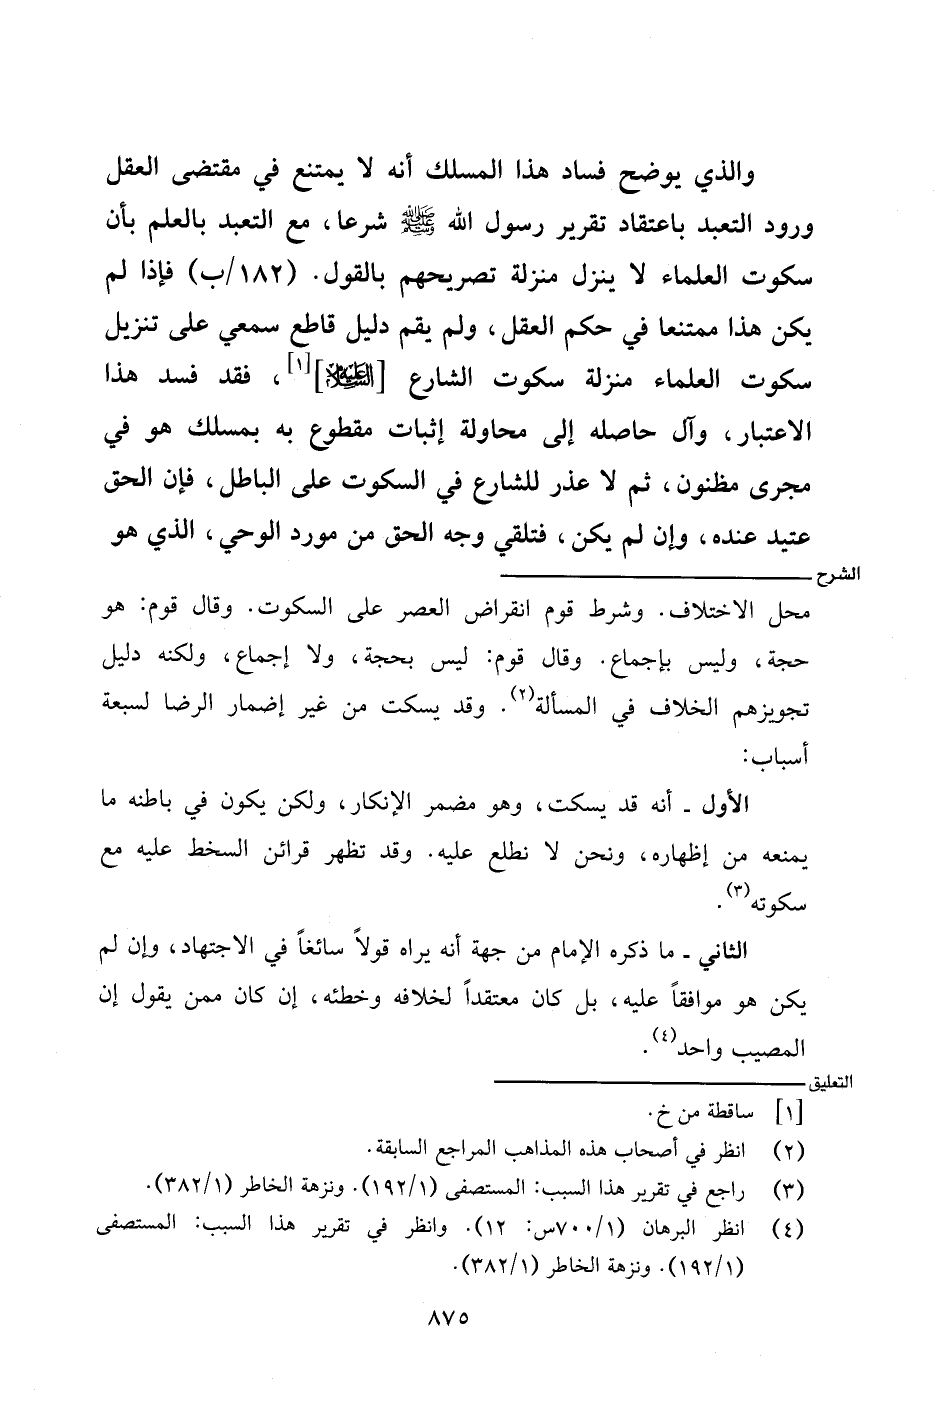 والذي يوضح فساد هذا المسلك أنه لا يمتنع في مقتضى العقل
ورود التعبد باعتقاد تقرير رسول الله ﷺ شرعا، مع التعبد بالعلم بأن
سكوت العلماء لا ينزل منزلة تصريحهم بالقول. (١٨٢/ب) فإذا لم
يكن هذا ممتنعا في حكم العقل، ولم يقم دليل قاطع سمعي على تنزيل
سكوت العلماء منزلة سكوت الشارع [عليه السلام][١]، فقد فسد هذا
الاعتبار، وآل حاصله إلى محاولة إثبات مقطوع به بمسلك هو في
مجرى مظنون، ثم لا عذر للشارع في السكوت على الباطل، فإن الحق
عتيد عنده، وإن لم يكن، فتلقي وجه الحق من مورد الوحي، الذي هو
الشرح
محل الاختلاف. وشرط قوم انقراض العصر على السكوت. وقال قوم: هو
حجة، وليس بإجماع. وقال قوم: ليس بحجة، ولا إجماع، ولكنه دليل
تجويزهم الخلاف في المسألة(٢). وقد يسكت من غير إضمار الرضا لسبعة
أسباب:
الأول ـ أنه قد يسكت، وهو مضمر الإنكار، ولكن يكون في باطنه ما
يمنعه من إظهاره، ونحن لا نطلع عليه. وقد تظهر قرائن السخط عليه مع
سكوته(٣).
الثاني ـ ما ذكره الإمام من جهة أنه يراه قولاً سائغاً في الاجتهاد، وإن لم
يكن هو موافقاً عليه، بل كان معتقداً لخلافه وخطئه، إن كان ممن يقول إن
المصيب واحد(٤).
التعليق
[١] ساقطة من خ.
(٢) انظر في أصحاب هذه المذاهب المراجع السابقة.
(٣) راجع في تقرير هذا السبب: المستصفى (١٩٢/١). ونزهة الخاطر (٣٨٢/١).
(٤) انظر البرهان (٧٠٠/١س: ١٢). وانظر في تقرير هذا السبب: المستصفى
(١٩٢/١). ونزهة الخاطر (٣٨٢/١).
٨٧٥